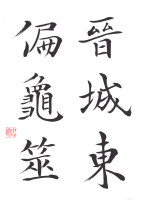 晉城東
偏龜筮